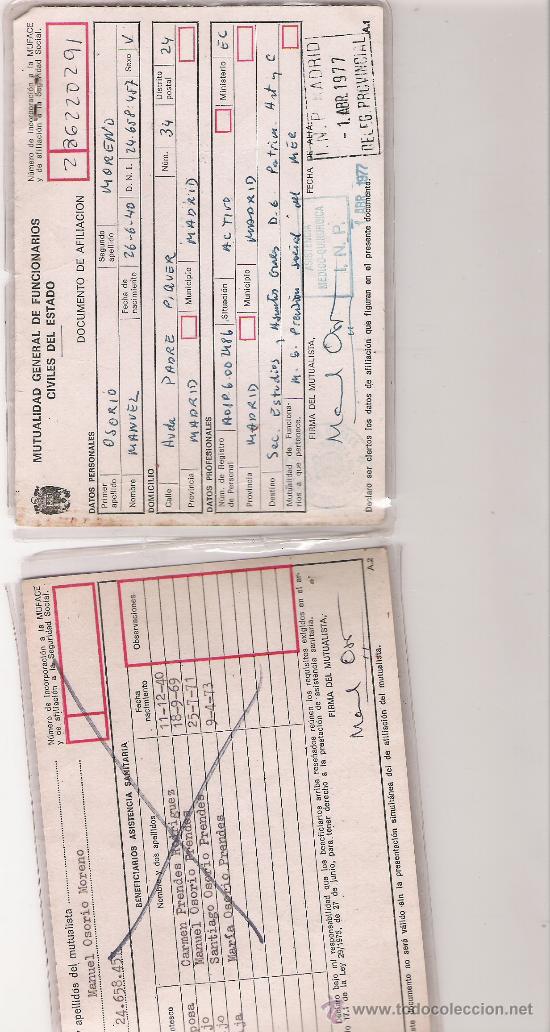 MUTUALIDAD GENERAL DE FUNCIONARIOS
CIVILES DEL ESTADO
Número de Incorporación a la MUFACE
y de afiliación a la Seguridad Social.
286220291
DOCUMENTO DE AFILIACION
DATOS PERSONALES
Primer apellido OSORIO Segundo apellido MORENO
Nombre MANUEL Fecha de nacimiento 26-6-40 D. N. I. 24.658.457 Sexo V
DOMICILIO
Calle Avda PADRE PIQUER Núm. 34 Distrito postal 24
Provincia MADRID Municipio MADRID
DATOS PROFESIONALES
Núm. de Registro de Personal A01PG002486 Situación ACTIVO Ministerio EC
Provincia MADRID Municipio MADRID
Destino Sec. Estudios y Asuntos Grales D.G. Patrim. Art y C
Mutualidad de Funcionarios a que pertenece. M. G. Previsión Social del MEC
FIRMA DEL MUTUALISTA,
FECHA DE ALTA:
I.N.P. MADRID
- 1 ABR. 1977
DELEG. PROVINCIAL
ASISTENCIA
MEDICO-QUIRURGICA
I. N. P.
ABR. 1977
Declaro ser ciertos los datos de afiliación que figuran en el presente documento.
A.1
Número de Incorporación a la MUFACE
y de afiliación a la Seguridad Social.
apellidos del mutualista
Manuel Osorio Moreno
24.658.45
BENEFICIARIOS ASISTENCIA SANITARIA
ntesco Nombre y dos apellidos Fecha nacimiento Observaciones
posa Carmen Prendes Rodríguez 11-12-40
jo Manuel Osorio Prendes 18-9-69
jo Santiago Osorio Prendes 25-7-71
ja María Osorio Prendes 9-4-73
claro bajo mi responsabilidad que los beneficiarios arriba reseñados reúnen los requisitos exigidos en el ar-
lo 17.1 de la Ley 29/1975, de 27 de junio, para tener derecho a la prestación de asistencia sanitaria.
FIRMA DEL MUTUALISTA,
ste documento no será válido sin la presentación simultánea del de afiliación del mutualista.
A.2
todocoleccion.net